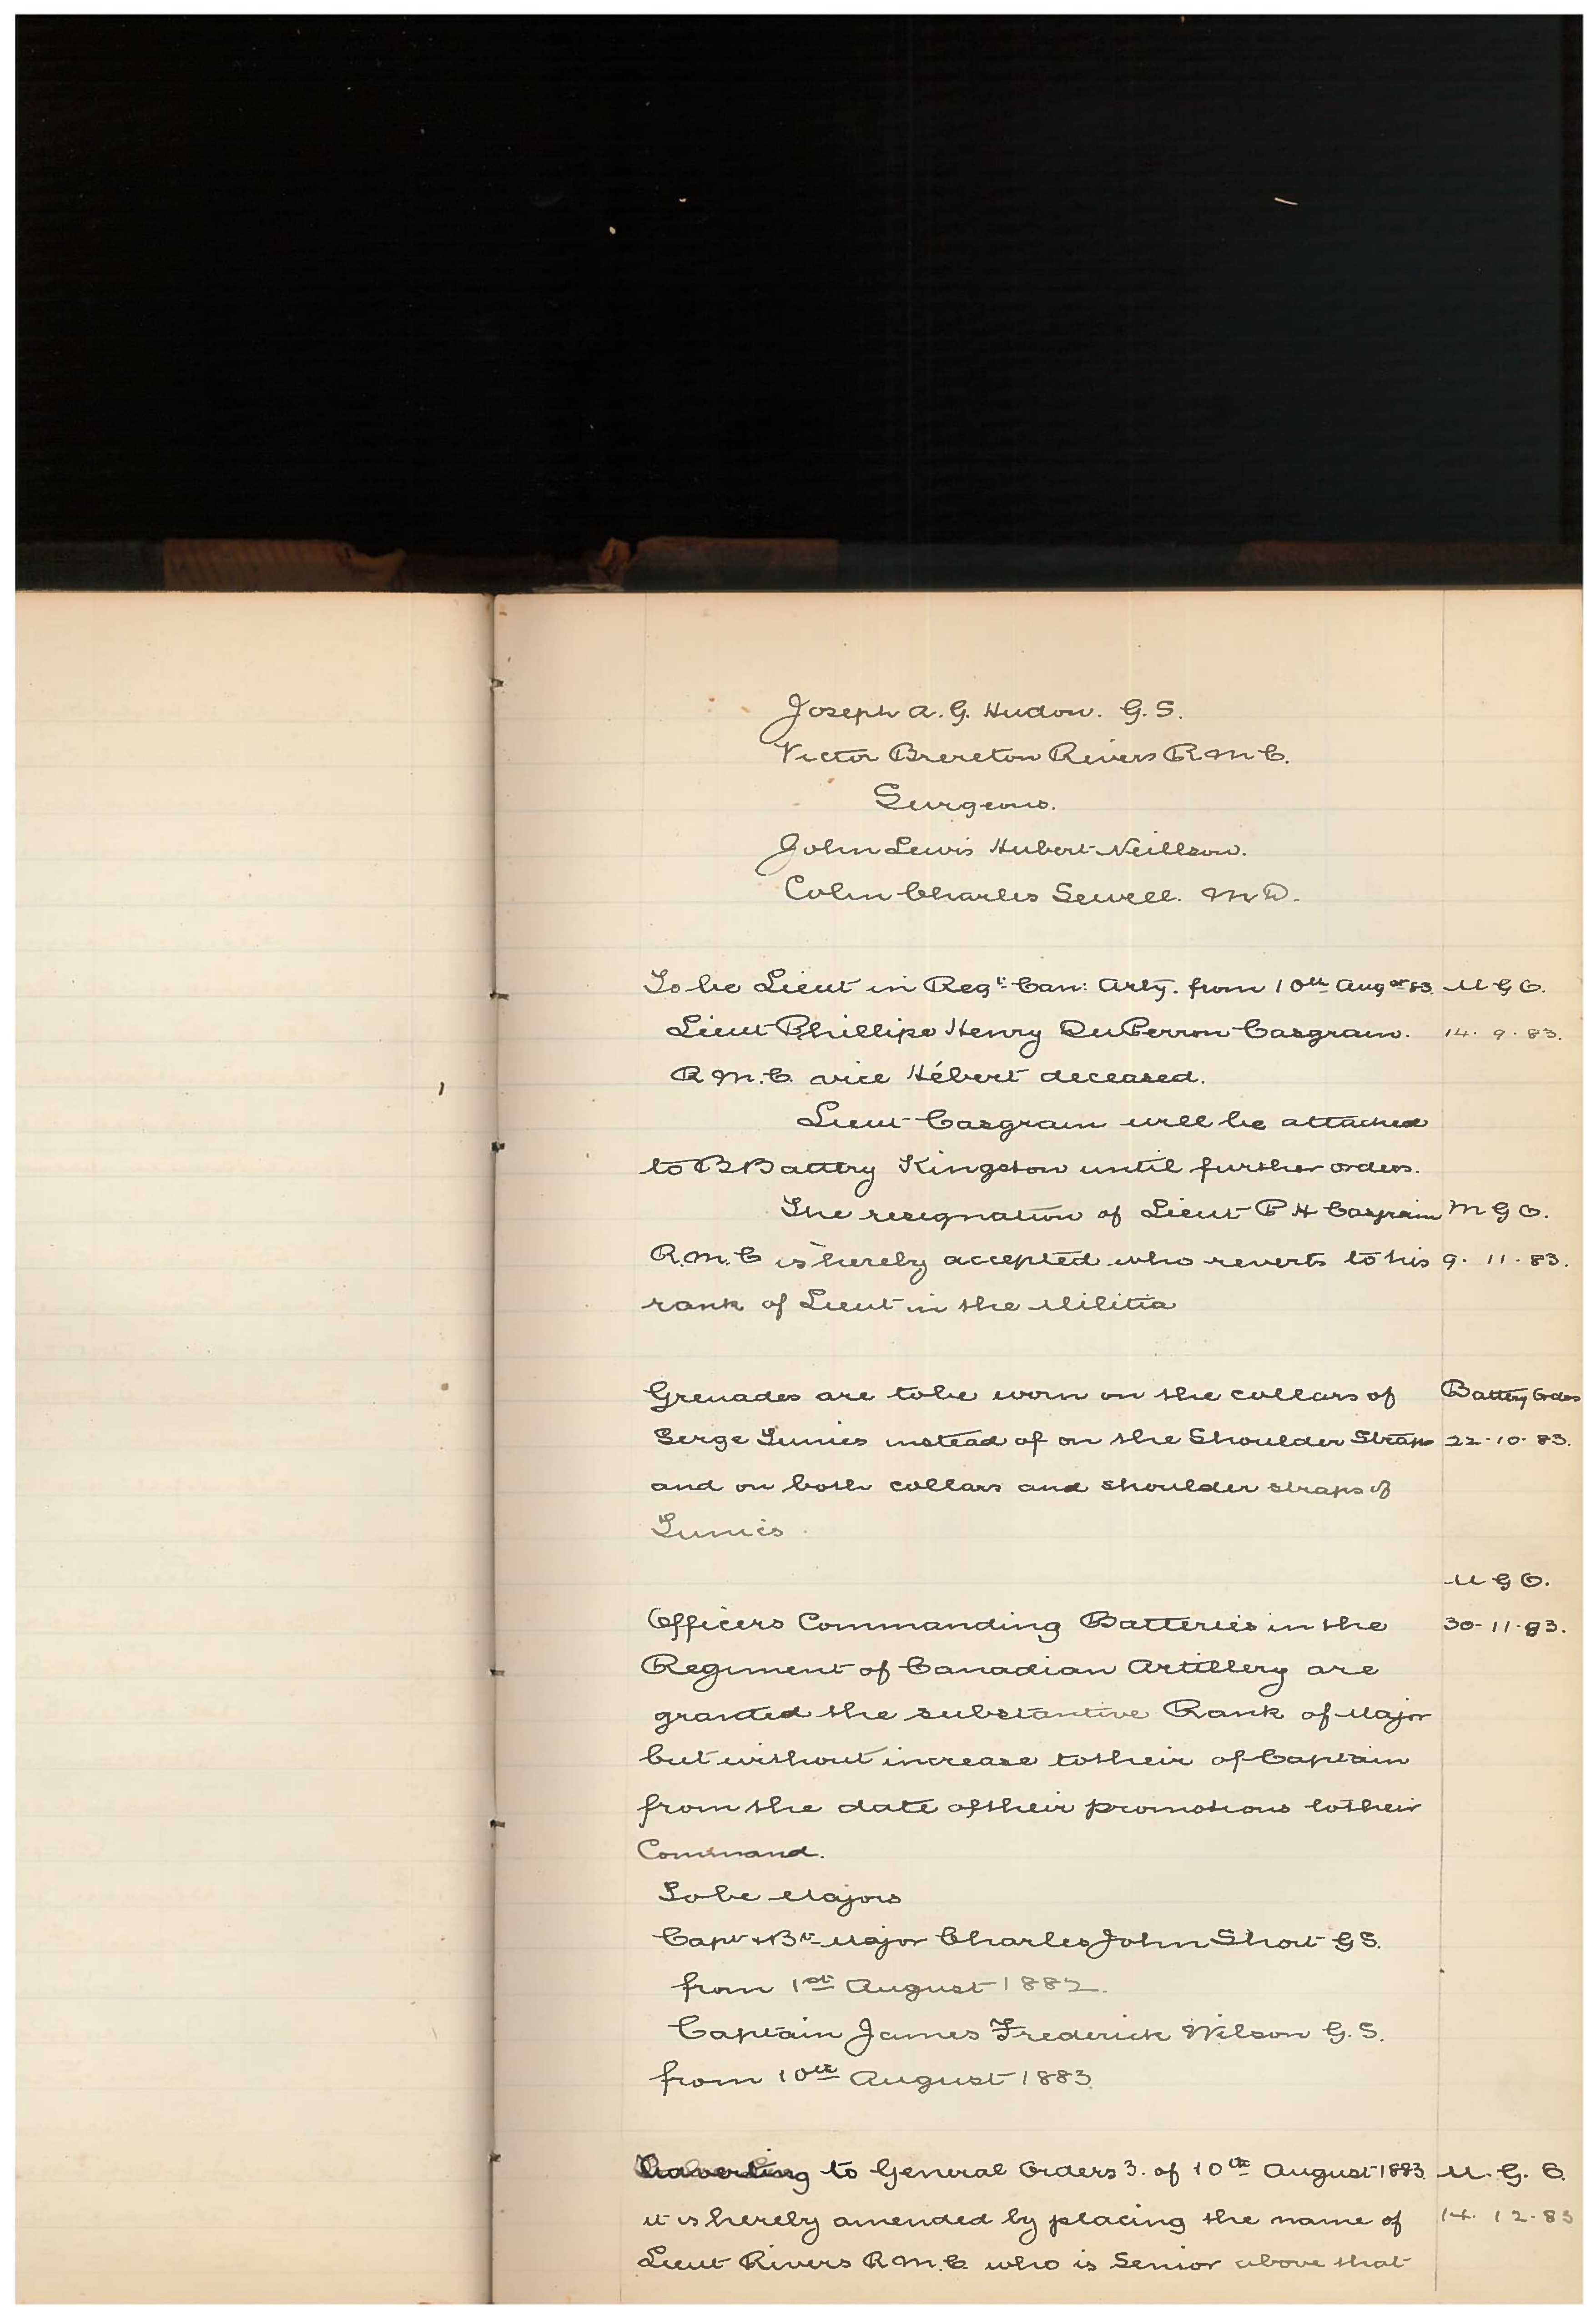 Joseph A. G. Hudon. G. S.
Victor Brereton Rivers R M C.
Surgeons.
John Lewis Hubert Neillson.
Colin Charles Sewell. M D.
To be Lieut in Regt. Can: Arty. from 10th Augst 83. M G O.
Lieut Phillipe Henry DuPerron Casgrain. 14. 9. 83.
R M. C. vice Hébert deceased.
Lieut Casgrain will be attached
to B Battery Kingston until further orders.
The resignation of Lieut P H Casgrain M G O.
R. M. C is hereby accepted who reverts to his 9. 11. 83.
rank of Lieut in the Militia
Grenades are to be worn on the collars of Battery Orders
Serge Tunics instead of on the Shoulder Straps 22-10-83.
and on both collars and shoulder straps of
Tunics.
M G O.
Officers Commanding Batteries in the 30-11-83.
Regiment of Canadian Artillery are
granted the substantive Rank of Major
but without increase to their of Captain
from the date of their promotions to their
Command.
To be Majors
Capt & Bt Major Charles John Short G S.
from 1st August 1882.
Captain James Frederick Wilson G. S.
from 10th August 1883.
Adverting to General Orders 3. of 10th August 1883. M. G. O.
it is hereby amended by placing the name of 14. 12. 83
Lieut Rivers R M. C. who is Senior above that